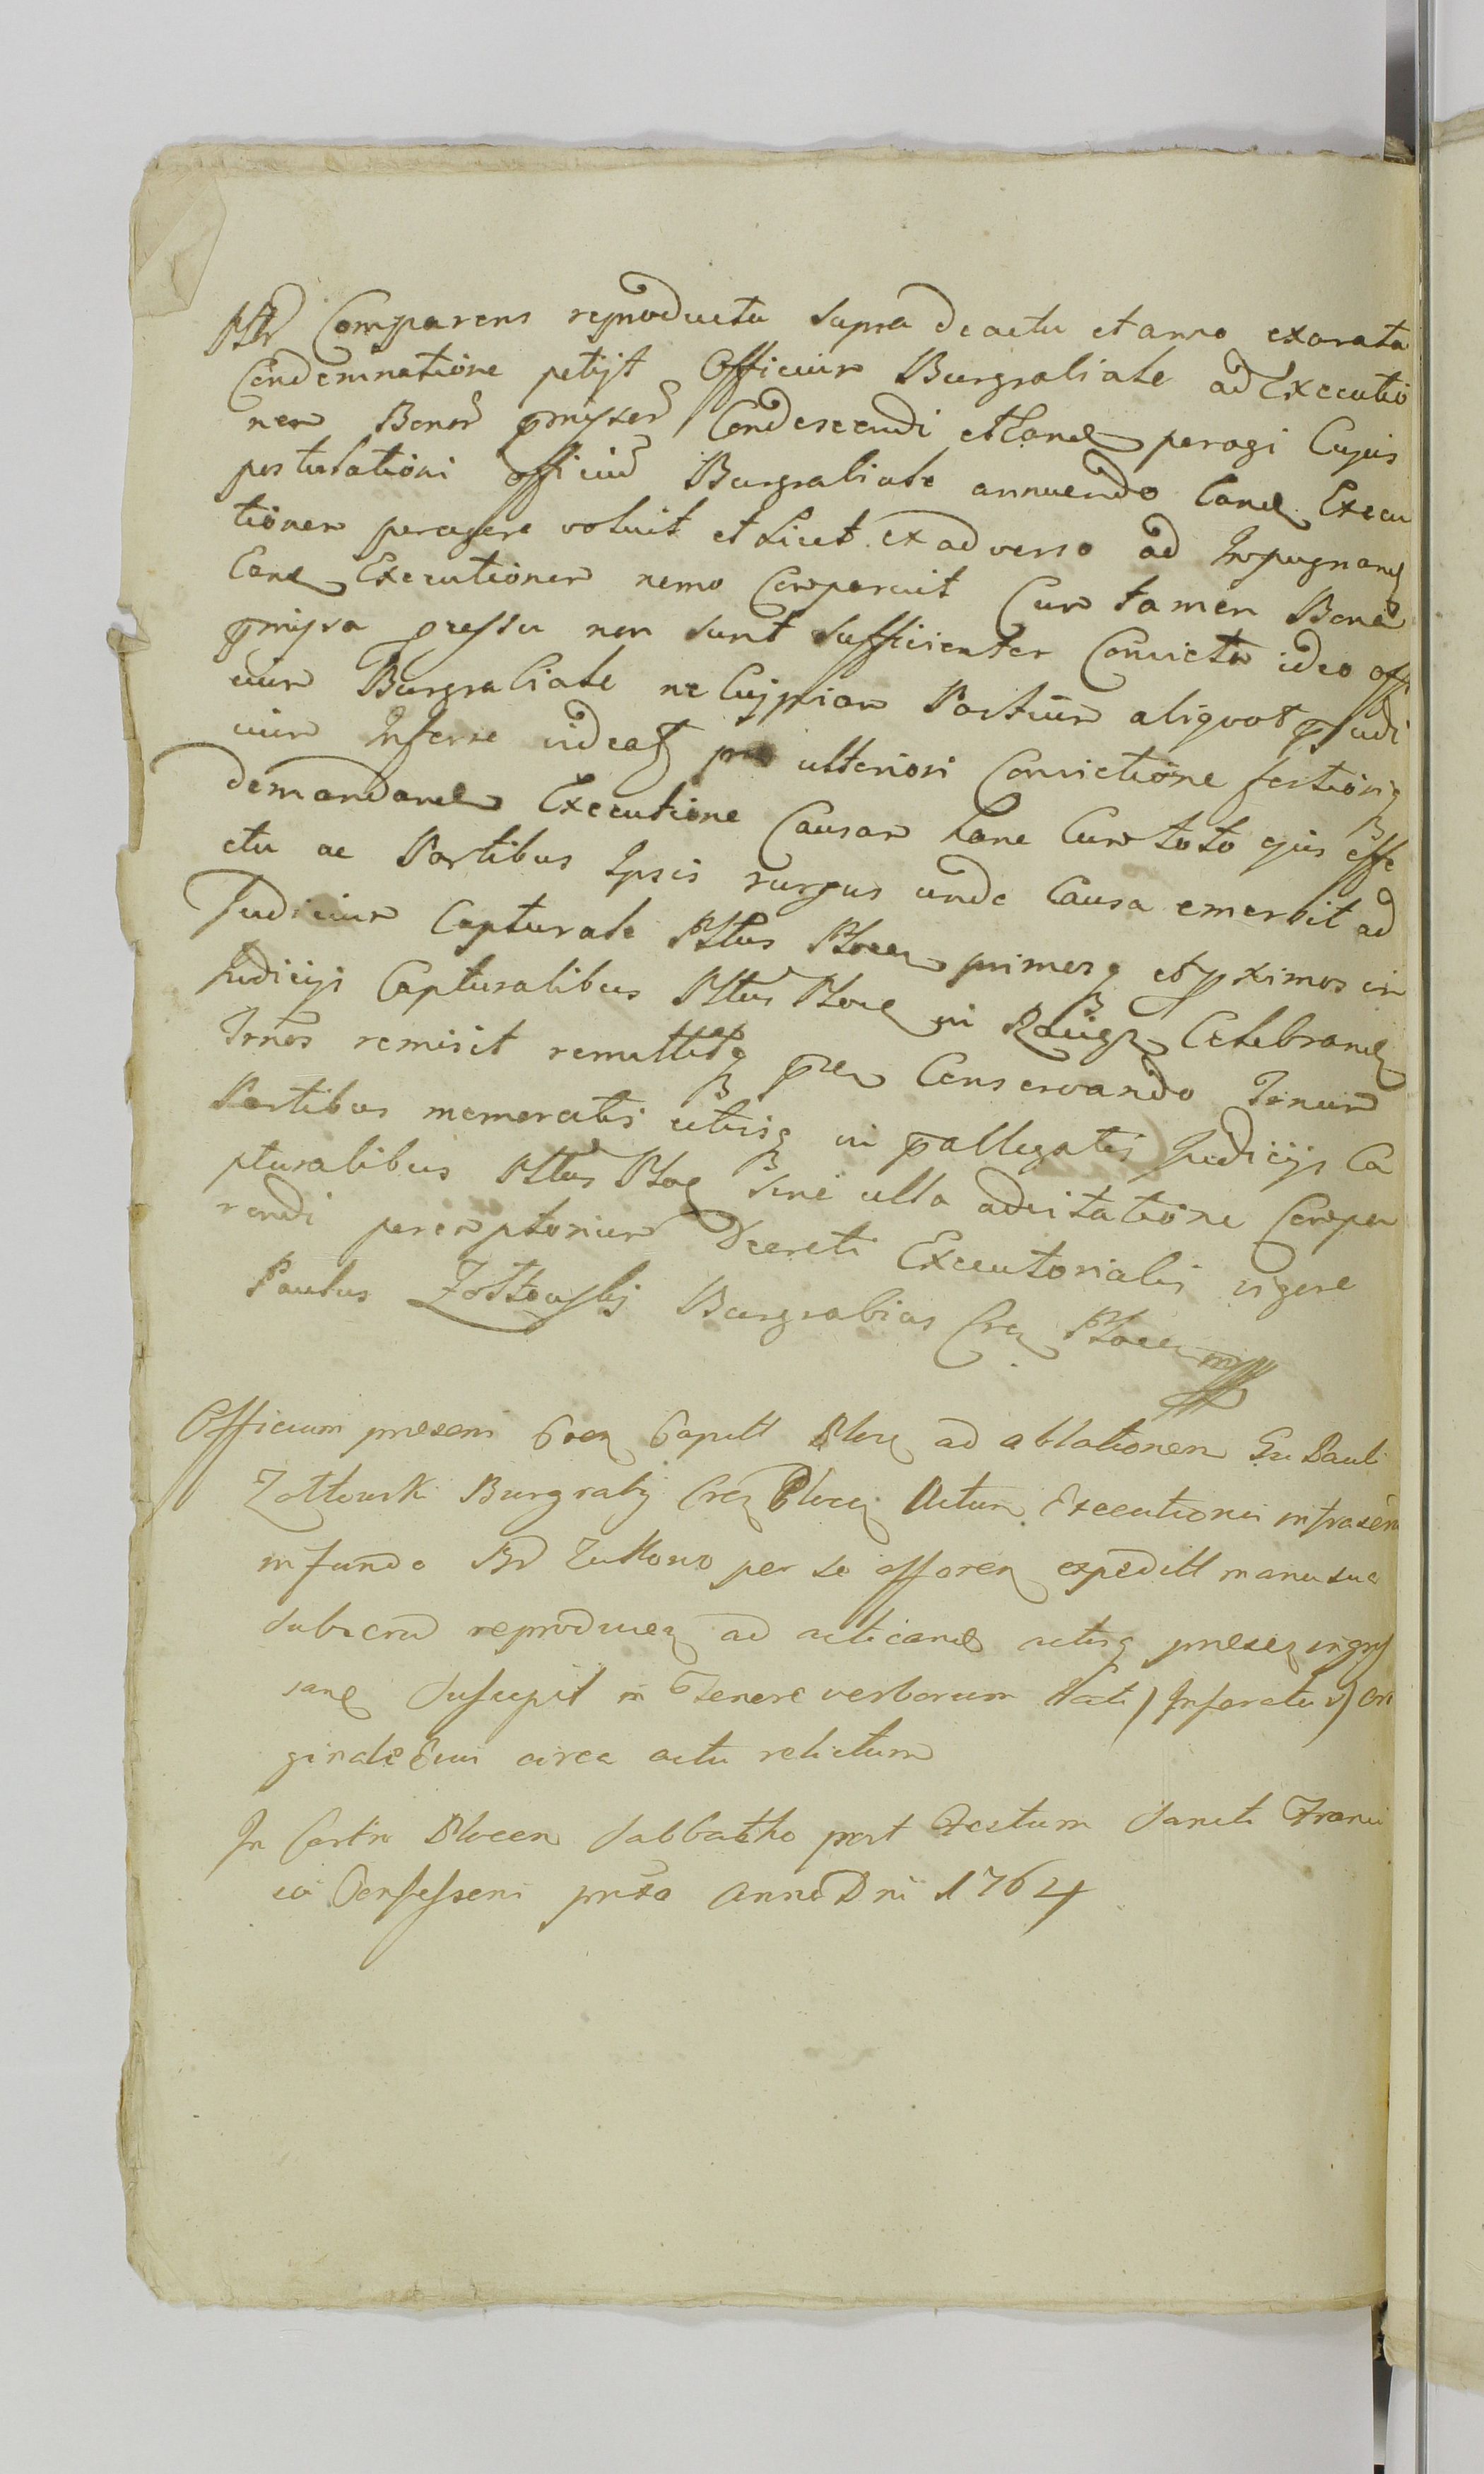 Comparens reproducta supra de actu et anno exarata
Condemnatione petijt Officium Burgrabiale ad Executio
nem Bonor Condescendi et Eand peragi Cujus
postulationi officiu Burgrabiale annuendo Eand Execu
tionem peragere voluit et Licet ex adverso ad Impugnand
Eand Executionem nemo Comparuit Cum tamen Bona
pmissa non sunt sufficienter Convicta ideo offi
cium Burgrabiale ne Cuipiam Partium aliquot pjudi
cium Inferre videat pro ulteriori Convictione fortioriq
demandand Executione Causam hanc Cum toto ejus effe
ctu ac Partibus Ipsis rursus unde Causa emersit ad
Judicium Capturale Pltus Plocen primosq et pximos in
Judicijs Capturalibus Pltus Ploc in Celebrand
Trnos remisit remittitq Conservando Trnum
Partibus memoratis utrisq in pallegatis Judicijs Ca
pturalibus Pltus Ploc sine ulla adcitatione Compa
rendi peremptorium Decreti Executorialis vigore
Paulus Zołtowskj Burgrabius Cren Plocen mpp
Officium presens Cren Capitt Ploc ad ablationem Gn Pauli
Zołtowski Burgrabij Cren Plocen Actum Executionis infrascrm
in fundo per se expeditt manu sua
subscrm reproducen ad acticand actisq presen ingros
sand Suscepit in Tenore verborum tali / Inseratur / Ori
ginale Cujus circa acta relictum
In Castro Plocen Sabbatho post Festum Sancti Franci
sci Confessoris pnxo Anno Dni 1764